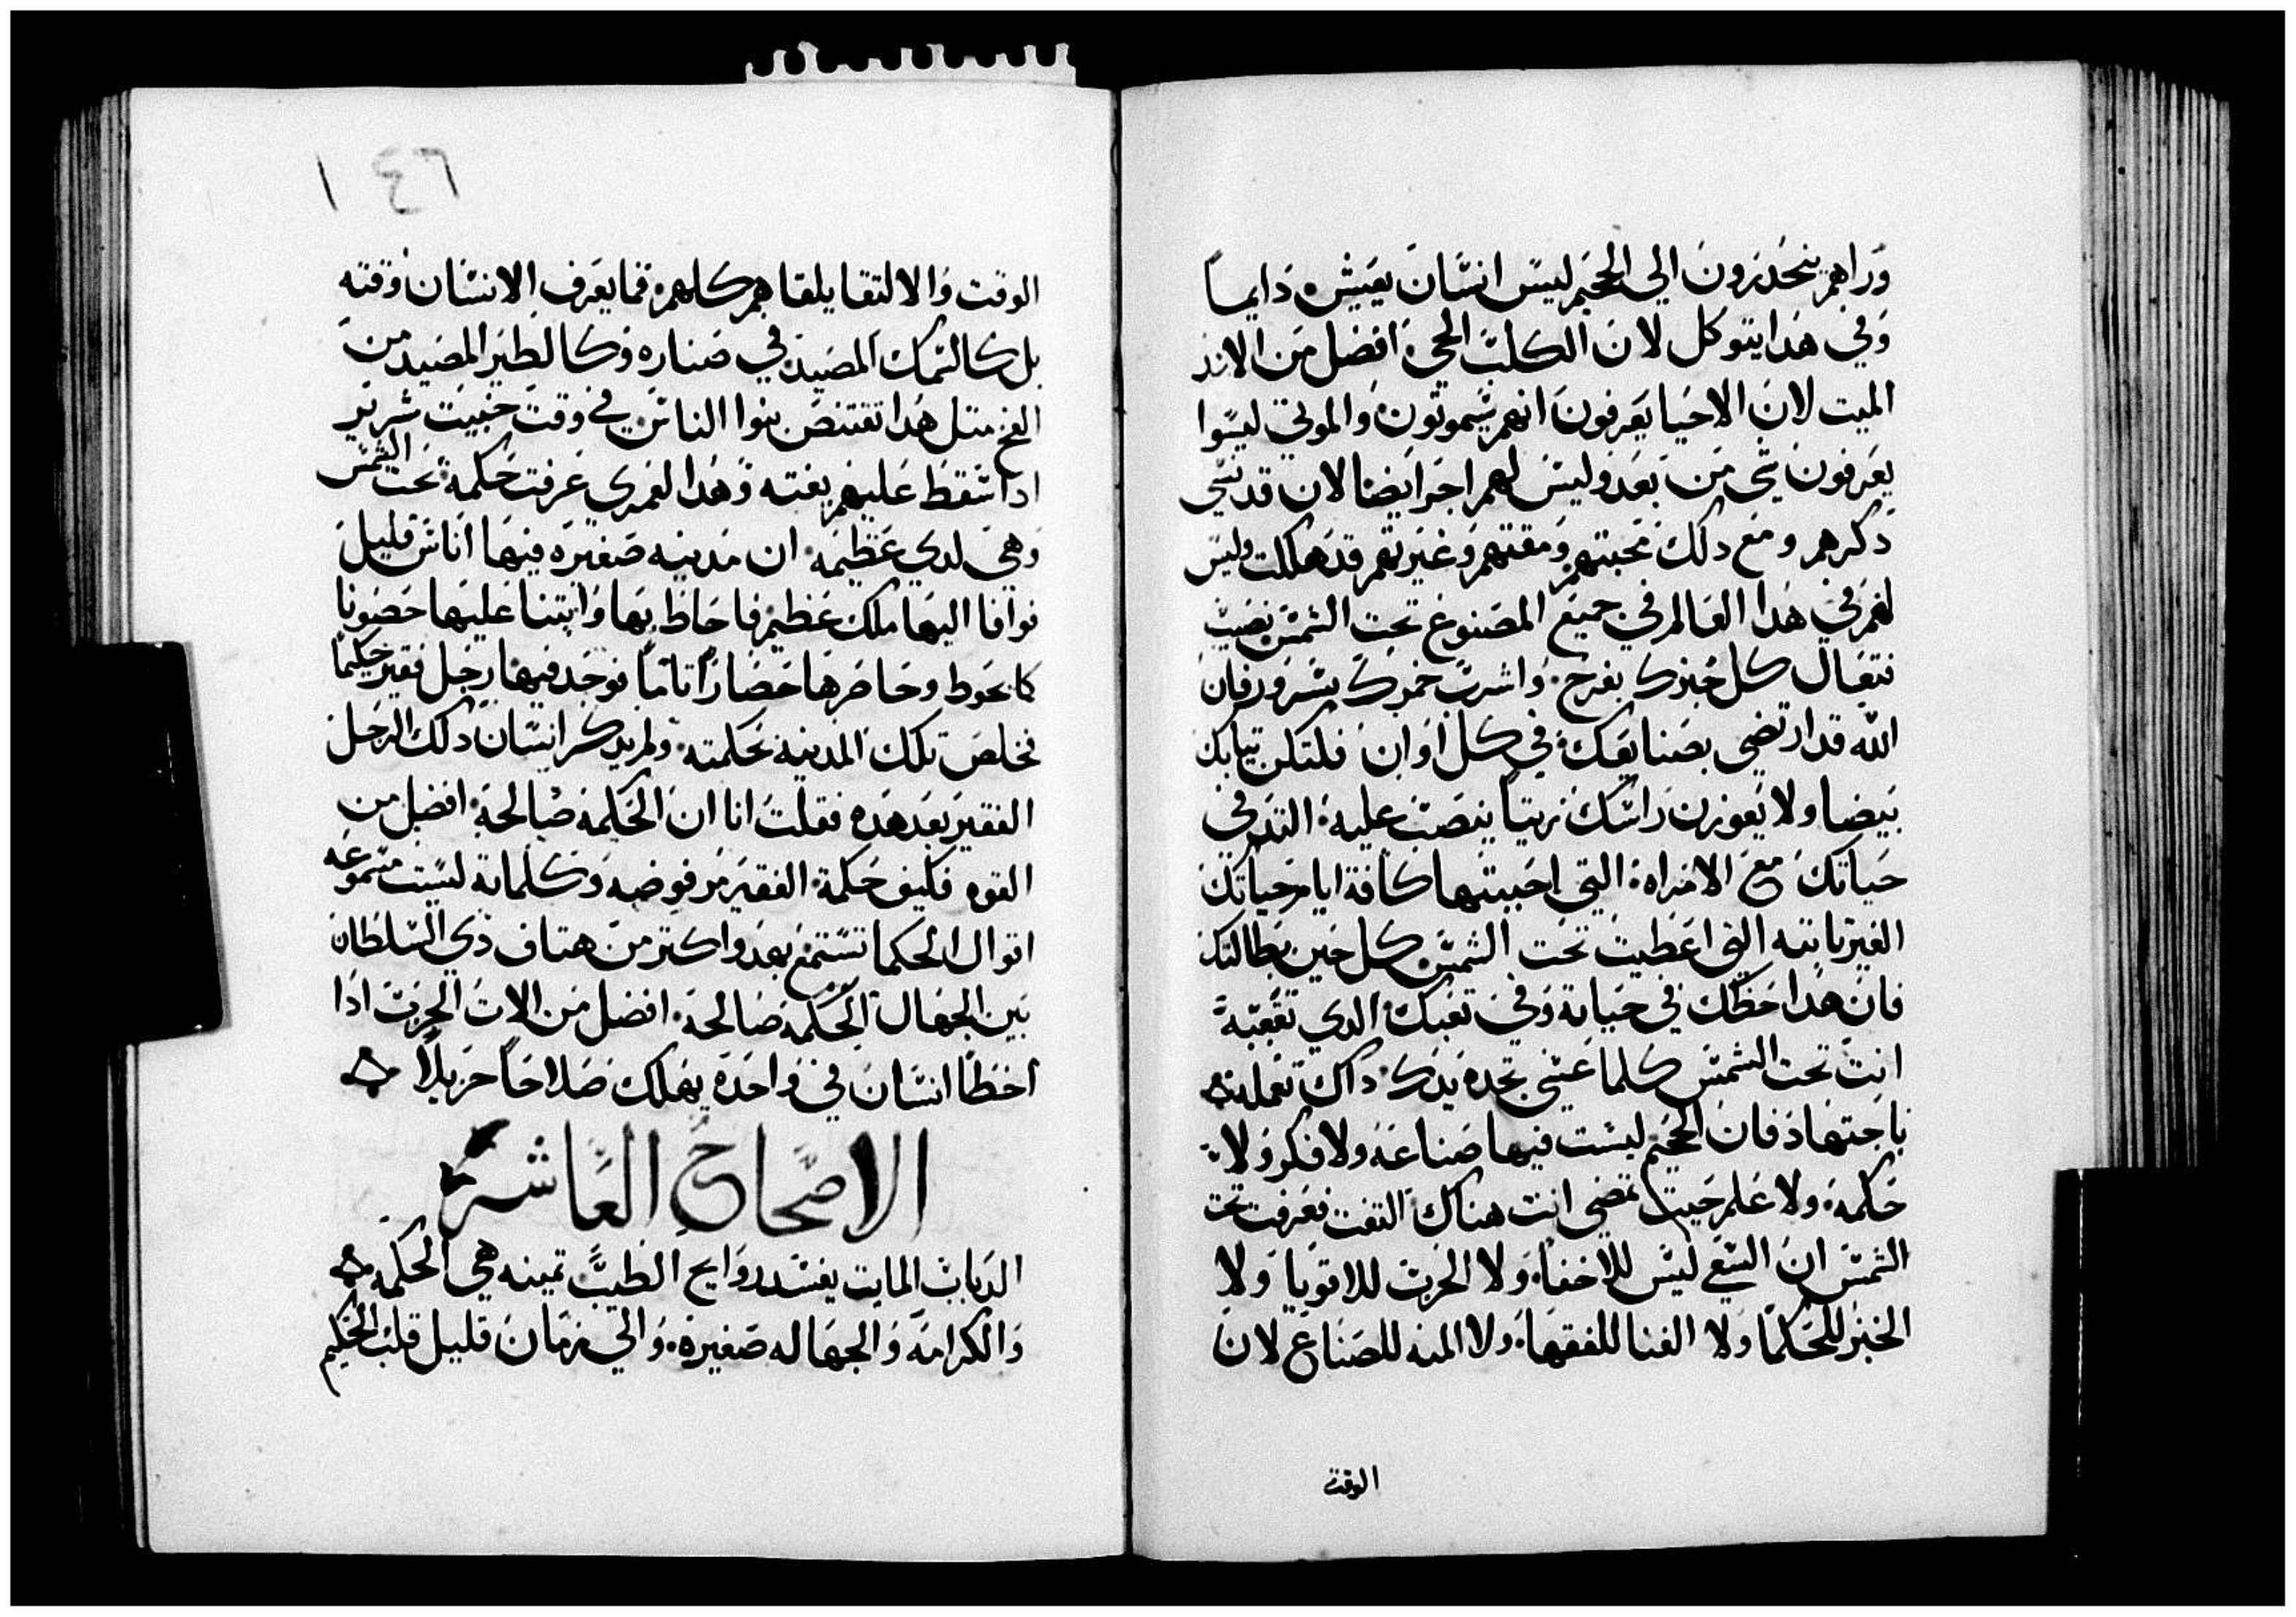 وراهم ينحدرون الي الجحيم ليس انسان يعيش دايماً
وفي هدا يتوكل لان الكلب الحي افضل من الاسد
الميت لان الاحيا يعرفون انهم سيموتون والموتي ليسوا
يعرفون شي من بعد وليس لهم اجر ايضا لان قد نسي
دكرهم ومع دلك محبتهم ومقتهم وغيرتهم قد هلكت وليس
لهم في هدا العالم في جميع المصنوع تحت الشمس نصيب
فتعال كل خبزك بفرح واشرب خمرك بسرور فان
الله قد ارتضي بصنايعك في كل اوان فلتكن تيابك
بيضا ولا يعوزن راسك زيتاً ينصب عليه التدم في
حياتك مع الامراه التي احببتها كافة ايام حياتك
الغير تابته التي اعطيت تحت الشمس كل حين بطالتك
فان هدا حظك في حياته وفي تعبك الدي تتعبه
انت تحت الشمس كلما عسي تجده يدك داك تعمله
باجتهاد فان الجحيم ليست فيها صناعه ولا فكر ولا
حكمه ولا علم حيت تمضي انت هناك التفت فعرفت تحت
الشمس ان السعي ليس للاخفا ولا الحرب للاقويا ولا
الخبز للحكما ولا الغنا للفقها ولا المنه للصناع لان
الوقت
١٤٦
الوقت والالتقا يلقاهم كلهم فما يعرف الانسان وقته
بل كالسمك المصيد في صناره وكالطير المصيد من
الفخ متل هدا تقتنص بنوا الناس في وقت خبيت شرير
ادا سقط عليهم بغته وهدا لعمري عرفت حكمة تحت الشمس
وهي لدي عظيمه ان مدينه صغيره فيها اناس قليل
نوافا اليها ملك عظيم فاحاظ بها وابتنا عليها حصونا
كا يحوط وحاصرها حصاراً تاماً فوجد فيها رجل فقير حكيماً
فخلص تلك المدينه بحكمته ولم يدكر انسان دلك الرجل
الفقير بعد هده فقلت انا ان الحكمة صالحة افضل من
القوه فكيف حكمة الفقير مرفوضه وكلماته ليست مسموعه
اقوال الحكما تستمع بهدو اكتر من هتاف دي السلطان
بين الجهال الحكمه صالحة افضل من الات الحرب ادا
اخطا انسان في واحدة يهلك صلاحاً جزيلاً
الاصحاح العاشر
الدباب المايت يفسد روايح الطيب تمينه هي الحكمه
والكرامه والجهاله صغيرة والي زمان قليل قلب الحكيم